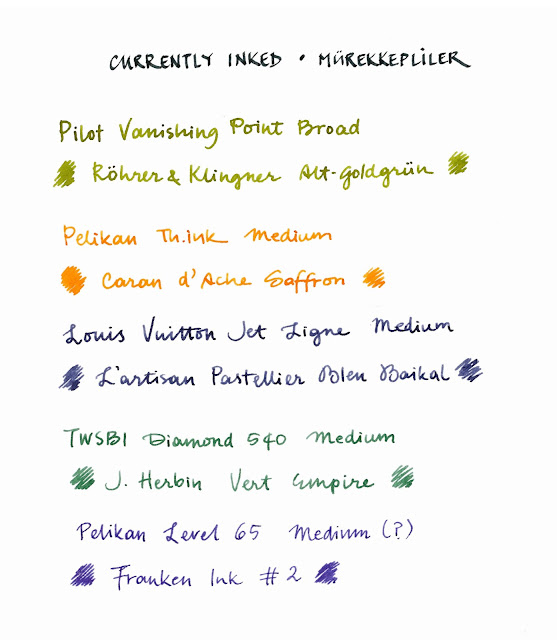 CURRENTLY INKED • MÜREKKEPLİLER
Pilot Vanishing Point Broad
Röhrer & Klingner Alt-Goldgrün
Pelikan Th.ink Medium
Caran d'Ache Saffron
Louis Vuitton Jet Ligne Medium
L'artisan Pastellier Bleu Baikal
TWSBI Diamond 540 Medium
J. Herbin Vert Empire
Pelikan Level 65 Medium (?)
Franken Ink # 2